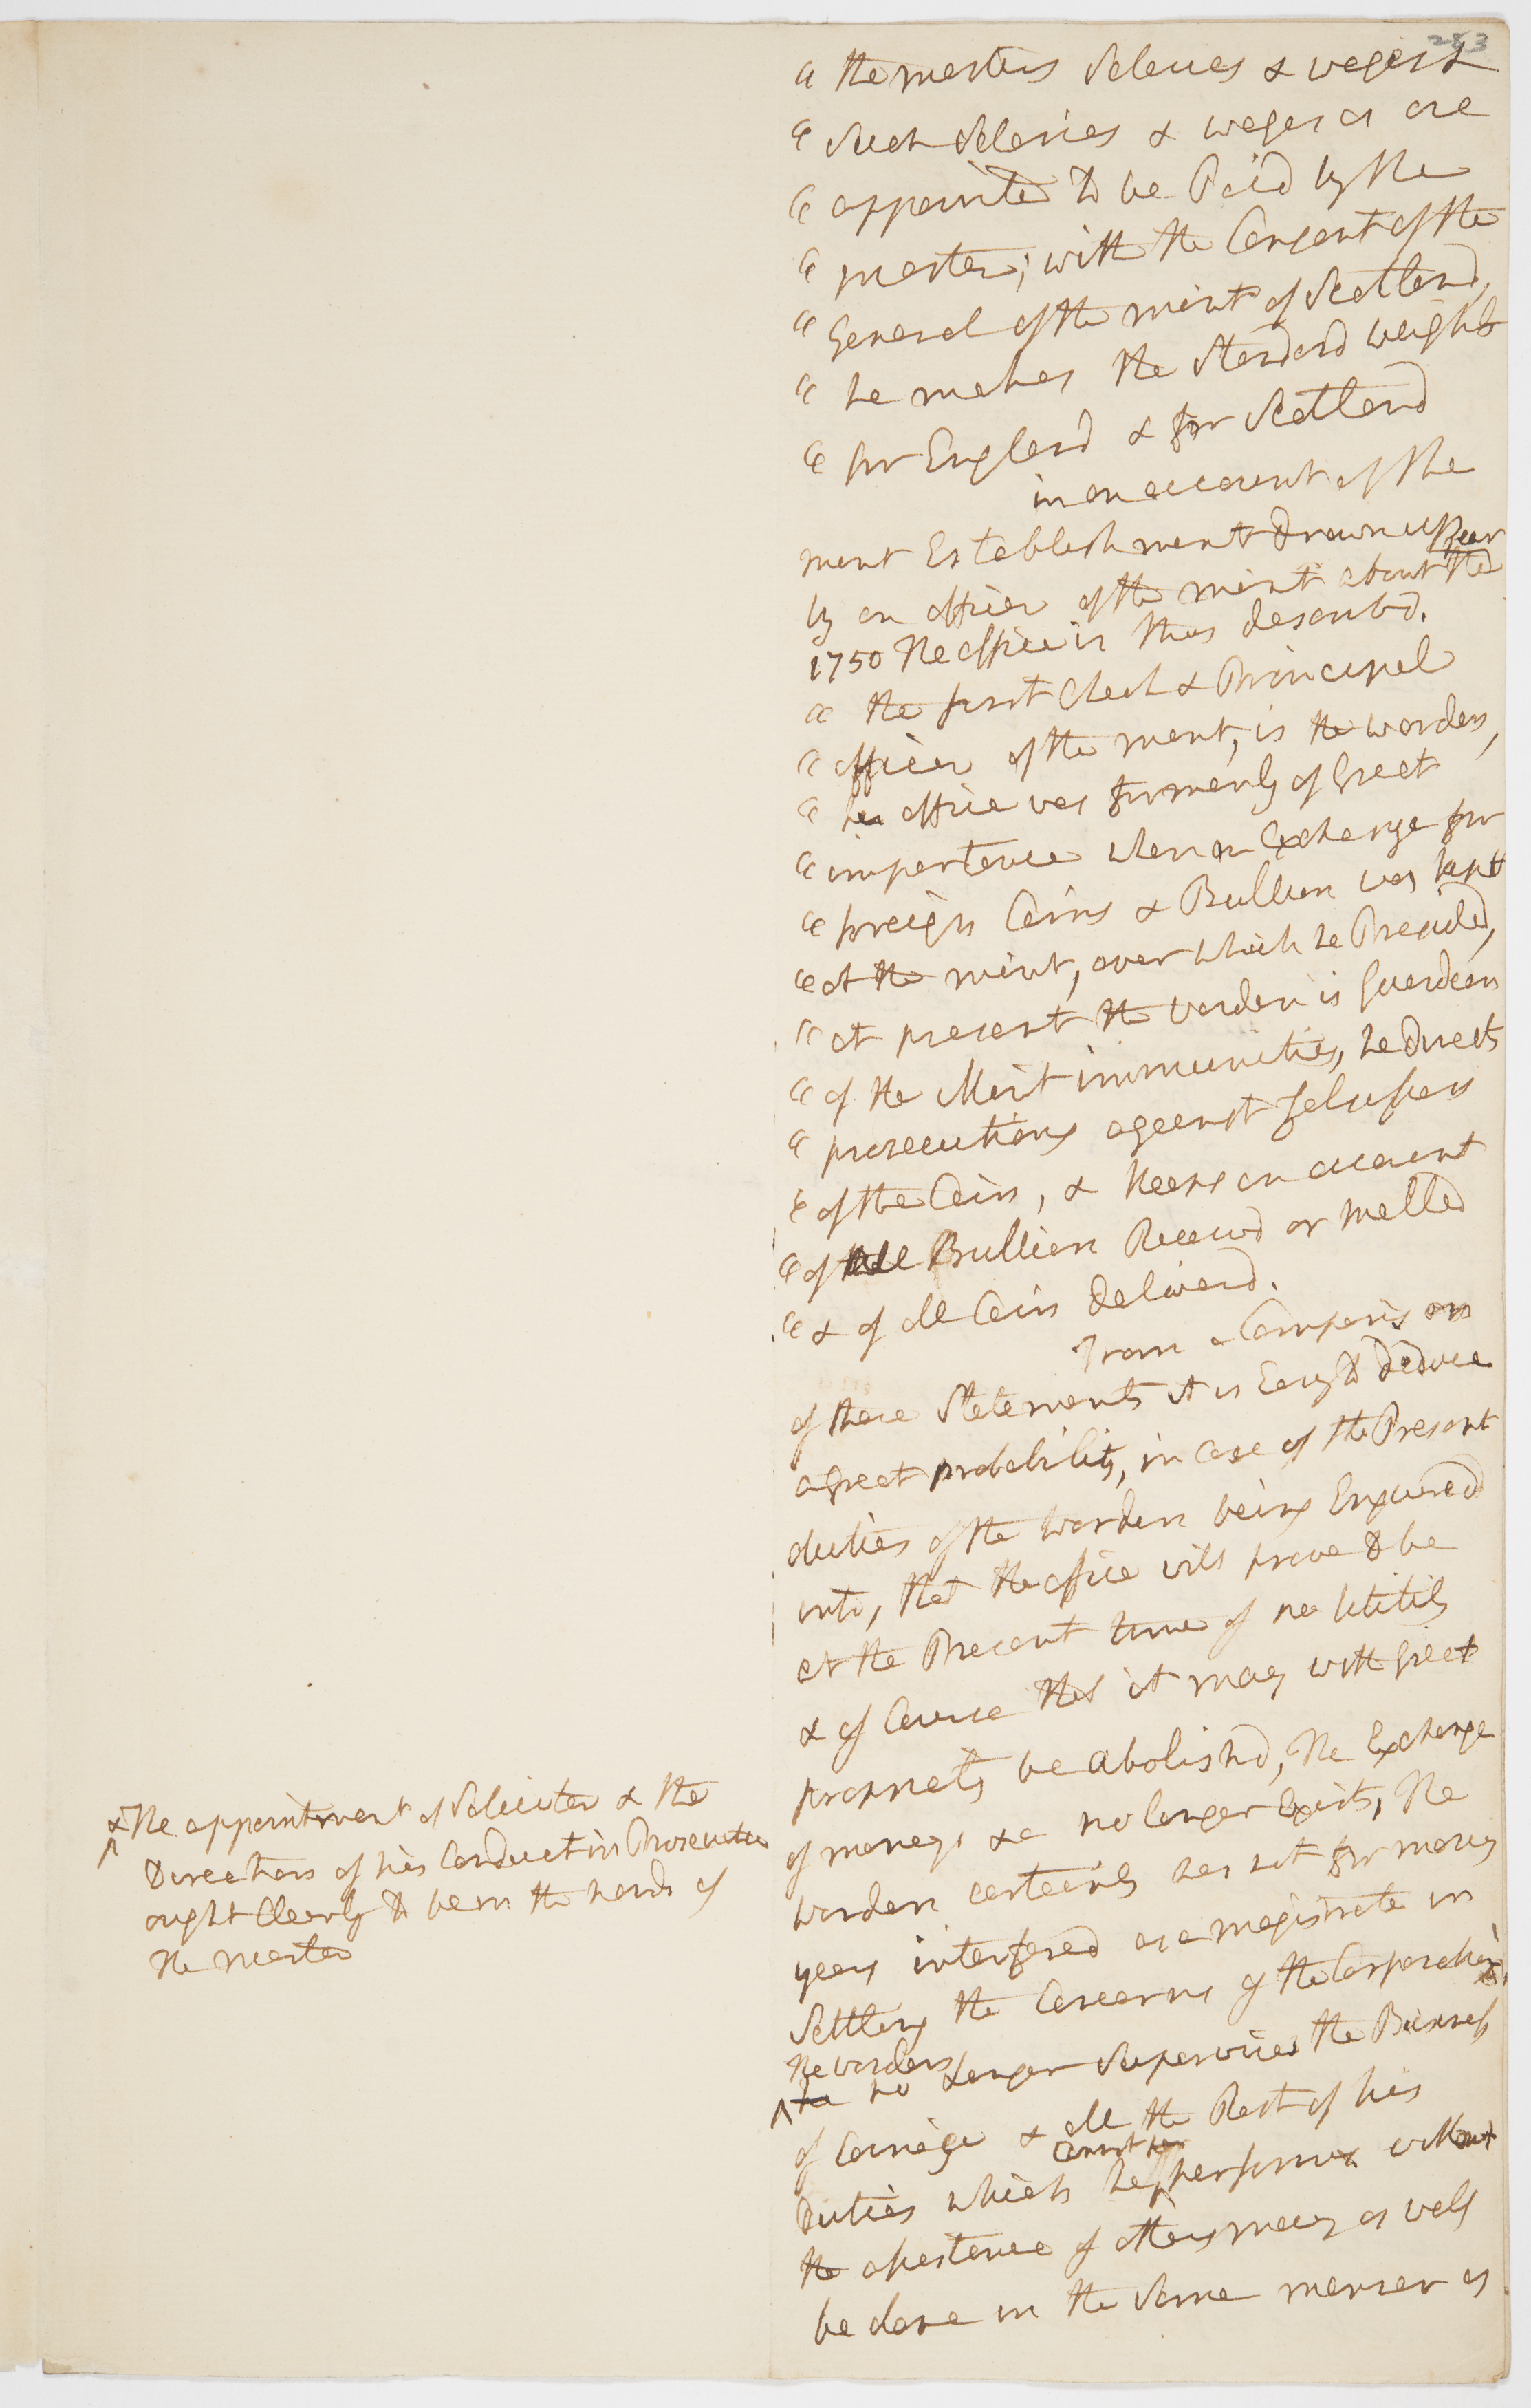 283
" the masters Salaries & wages &
" Such Salaries & wages as are
" appointed to be Paid by the
" master, with the Consent of the
" General of the mint of Scotland,
" he makes the Standard weights
" for England & for Scotland
in an account of the
mint Establishment drawn up
by an officer of the mint about the year
1750 the office is thus describd.
" the first Check & Principal
" officer of the mint, is the warden,
" his office was formerly of Great
" importance when an Exchange for
" foreign Coins & Bullion was kept
" at the mint, over which he Presided,
" at present the warden is Guardian
" of the Mint immunities, he directs
" prosecutions against falsifiers
" of the Coin, & keeps an account
" of all Bullion Receivd or melted
" & of all Coin deliverd.
From a Comparison
of these Statements it is Easy to deduce
a great probability, in Case of the Present
duties of the warden being Enquired
into, that the office will prove to be
at the Present time of no utility
& of Course that it may with great
propriety be abolishd, The Exchange
of moneys &c no longer Exists, The
warden certainly has not for many
years interfered as a magistrate in
Settling the Concerns of the Corporation,
the warden
^ he no Longer Supervises the Business
of Coinage & all the Rest of his
Duties which he ^ cannot performe without
the assistance of others may as well
be done in the Same manner as
& ^ The appointment of Soliciter & the
Direction of his Conduct in Prosecution
ought Clearly to be in the hands of
the master